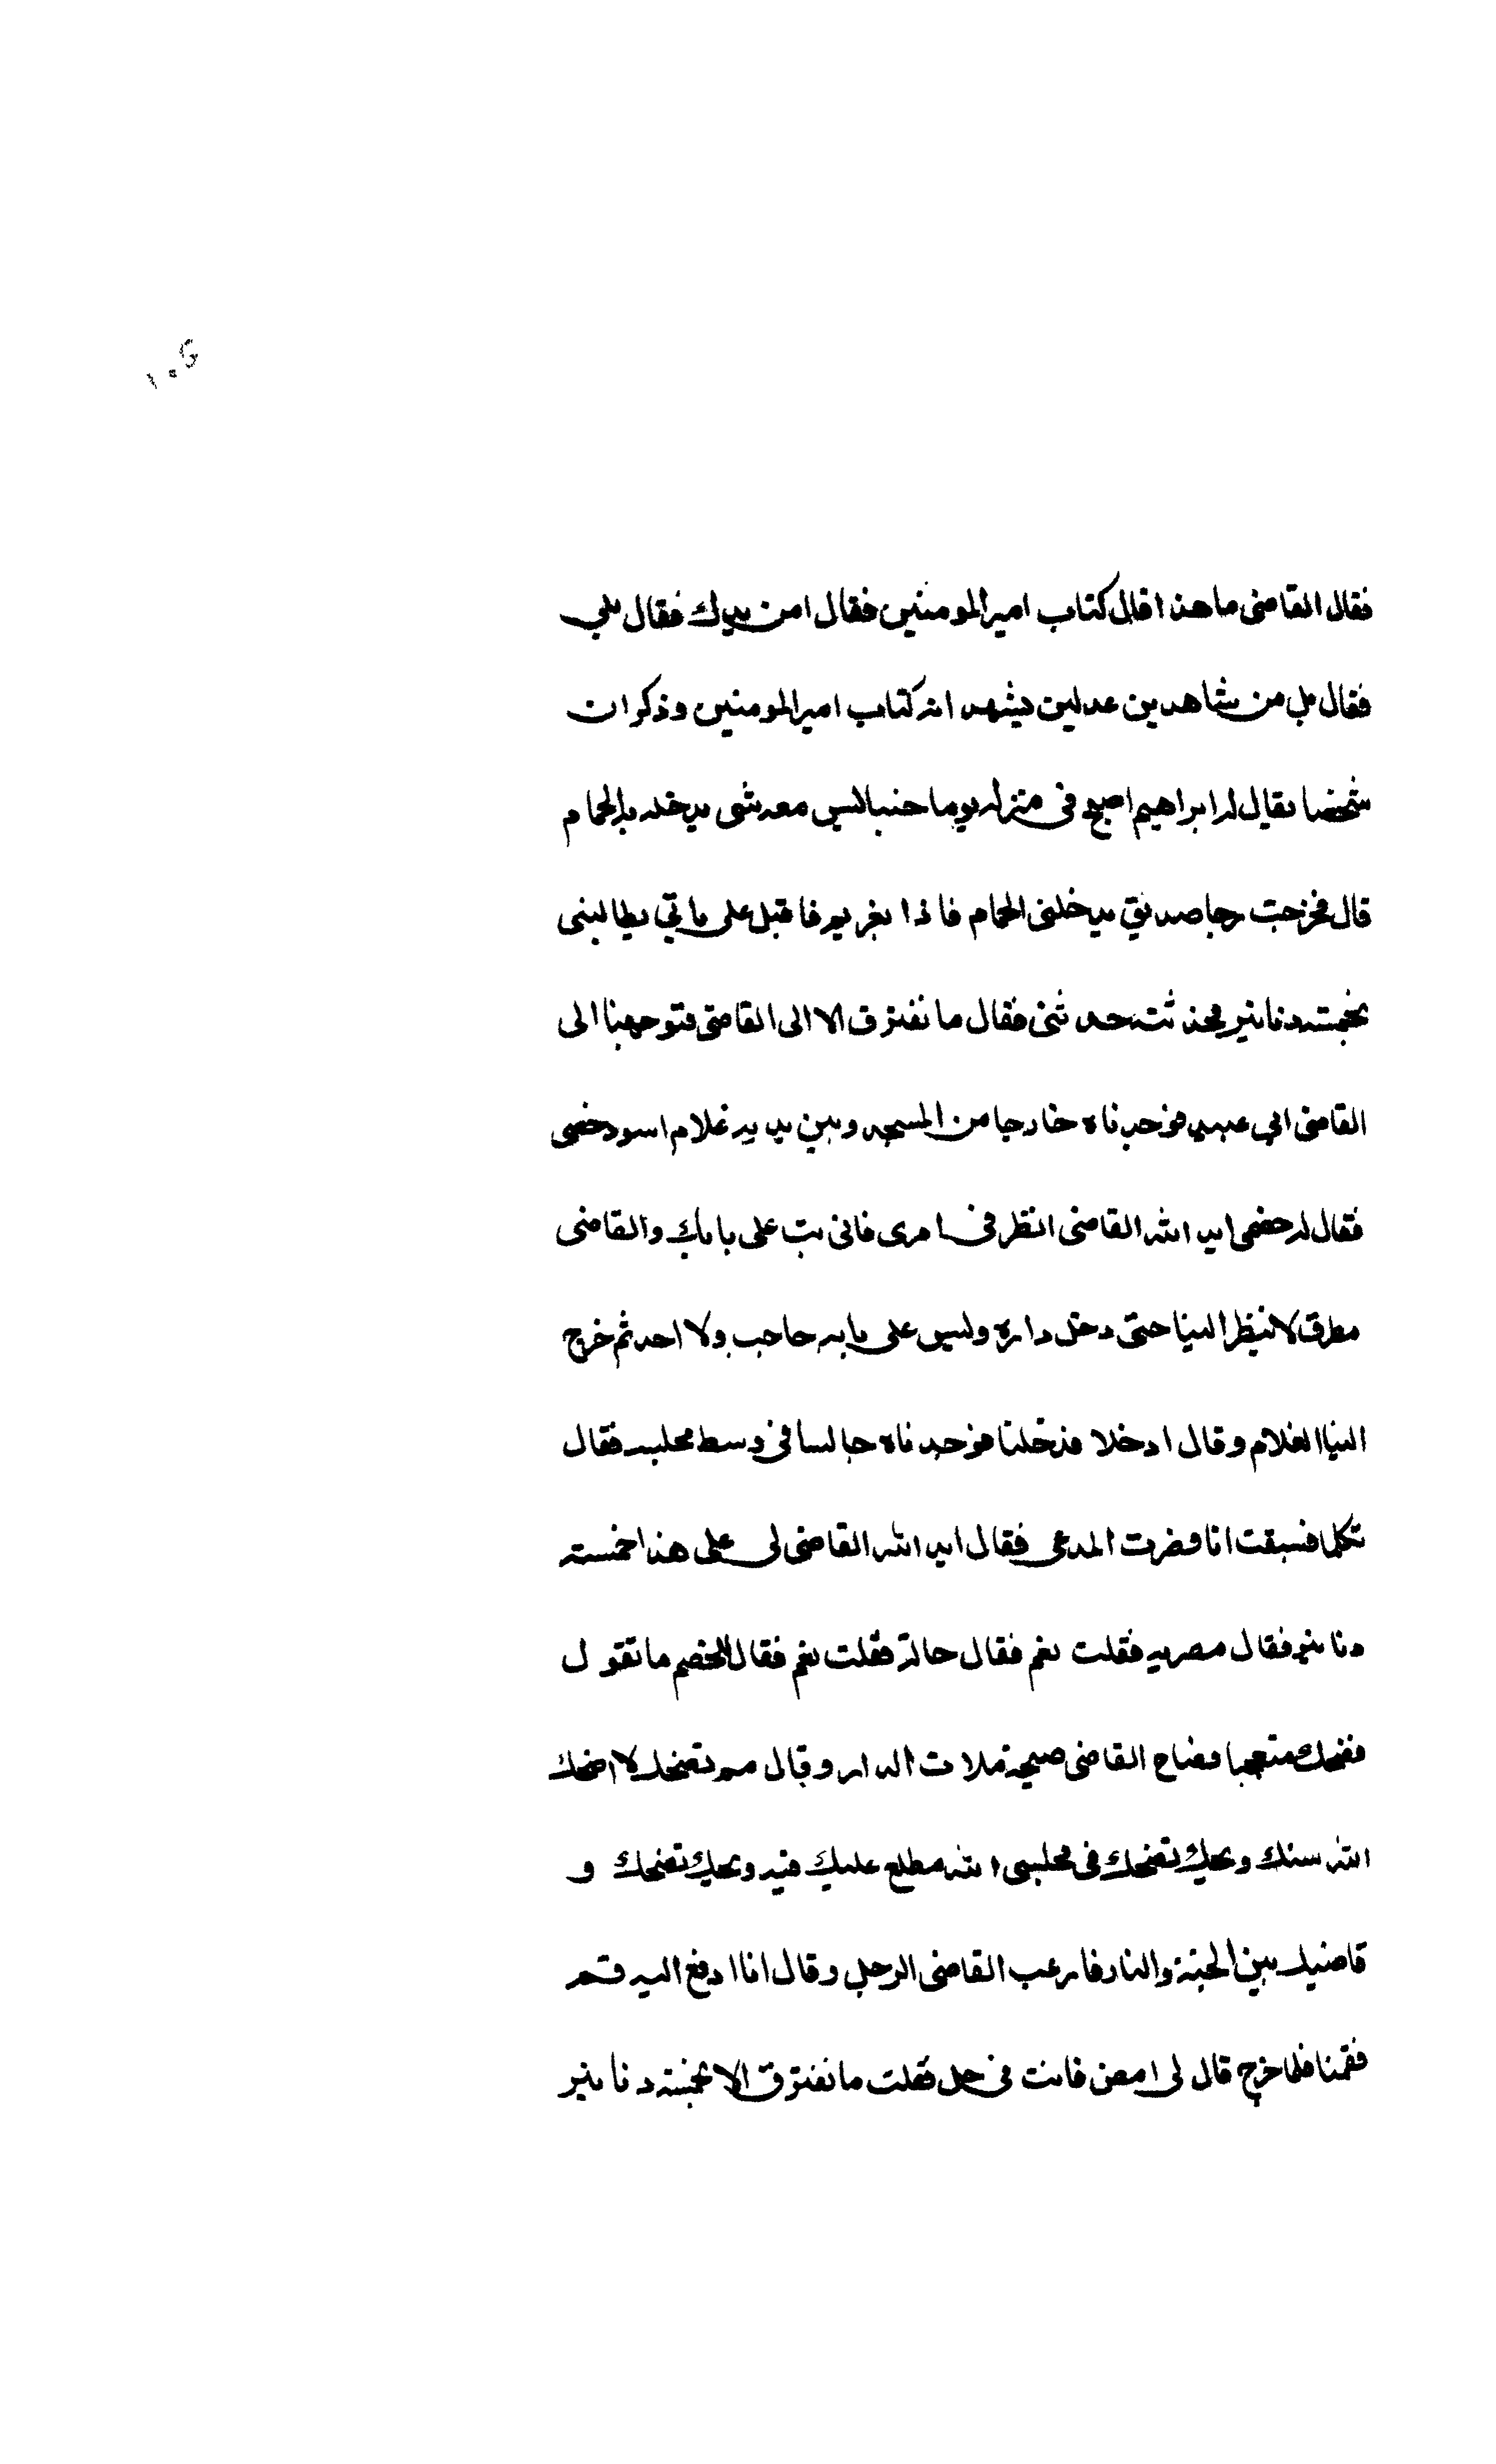 فقال القاضى ما هذا قال كتاب امير المومنين فقال امن يدك فقال بلى
فقال بل من شاهدين عدلين يشهد انه كتاب امير المومنين وذكر ان
شخصا يقال له ابراهيم اصبح فى منزله يوما جنبا ليس معه شى يدخله به الحمام
قال فخرجت رجا صديق يدخلنى الحمام فاذا بغريم فاقبل على باتي يطالبنى
بخمسة دنانير فجذبته حد ثنى فقال ما نفترق الا الى القاضى فتوجهنا الى
القاضى ابي عبيد فوجدناه خارجا من المسجد وبين يديه غلام اسود خصى
فقال له خصمى ايد الله القاضى انظر فى امرى فانى بت على بابك والقاضى
مطرق لا ينظر الينا حتى دخل داره وليس على بابه حاجب ولا احد ثم خرج
الينا الغلام وقال ادخلا فدخلنا فوجدناه جالسا فى وسط مجلسه فقال
تكلما فسبقت انا وضرت المدعى فقال ايد الله القاضى لى على هذا خمسة
دنانير فقال مصريه فقلت نعم فقال حالة فقلت نعم فقال للخصم ما تقول
فضحك متعجبا فصاح القاضى صيحة ملات الدار وقال مم تضحك لا اضحك
الله سنك ويحك تضحك فى مجلسى الله مطلع عليك فيه ويحك تضحك و
قاضيك بين الجنة والنار فارعب القاضى الرجل وقال انا ادفع اليه قم
فقمنا فلما خرج قال لى امض فانت فى حل فقلت ما نفترق الا بخمسة دنانير